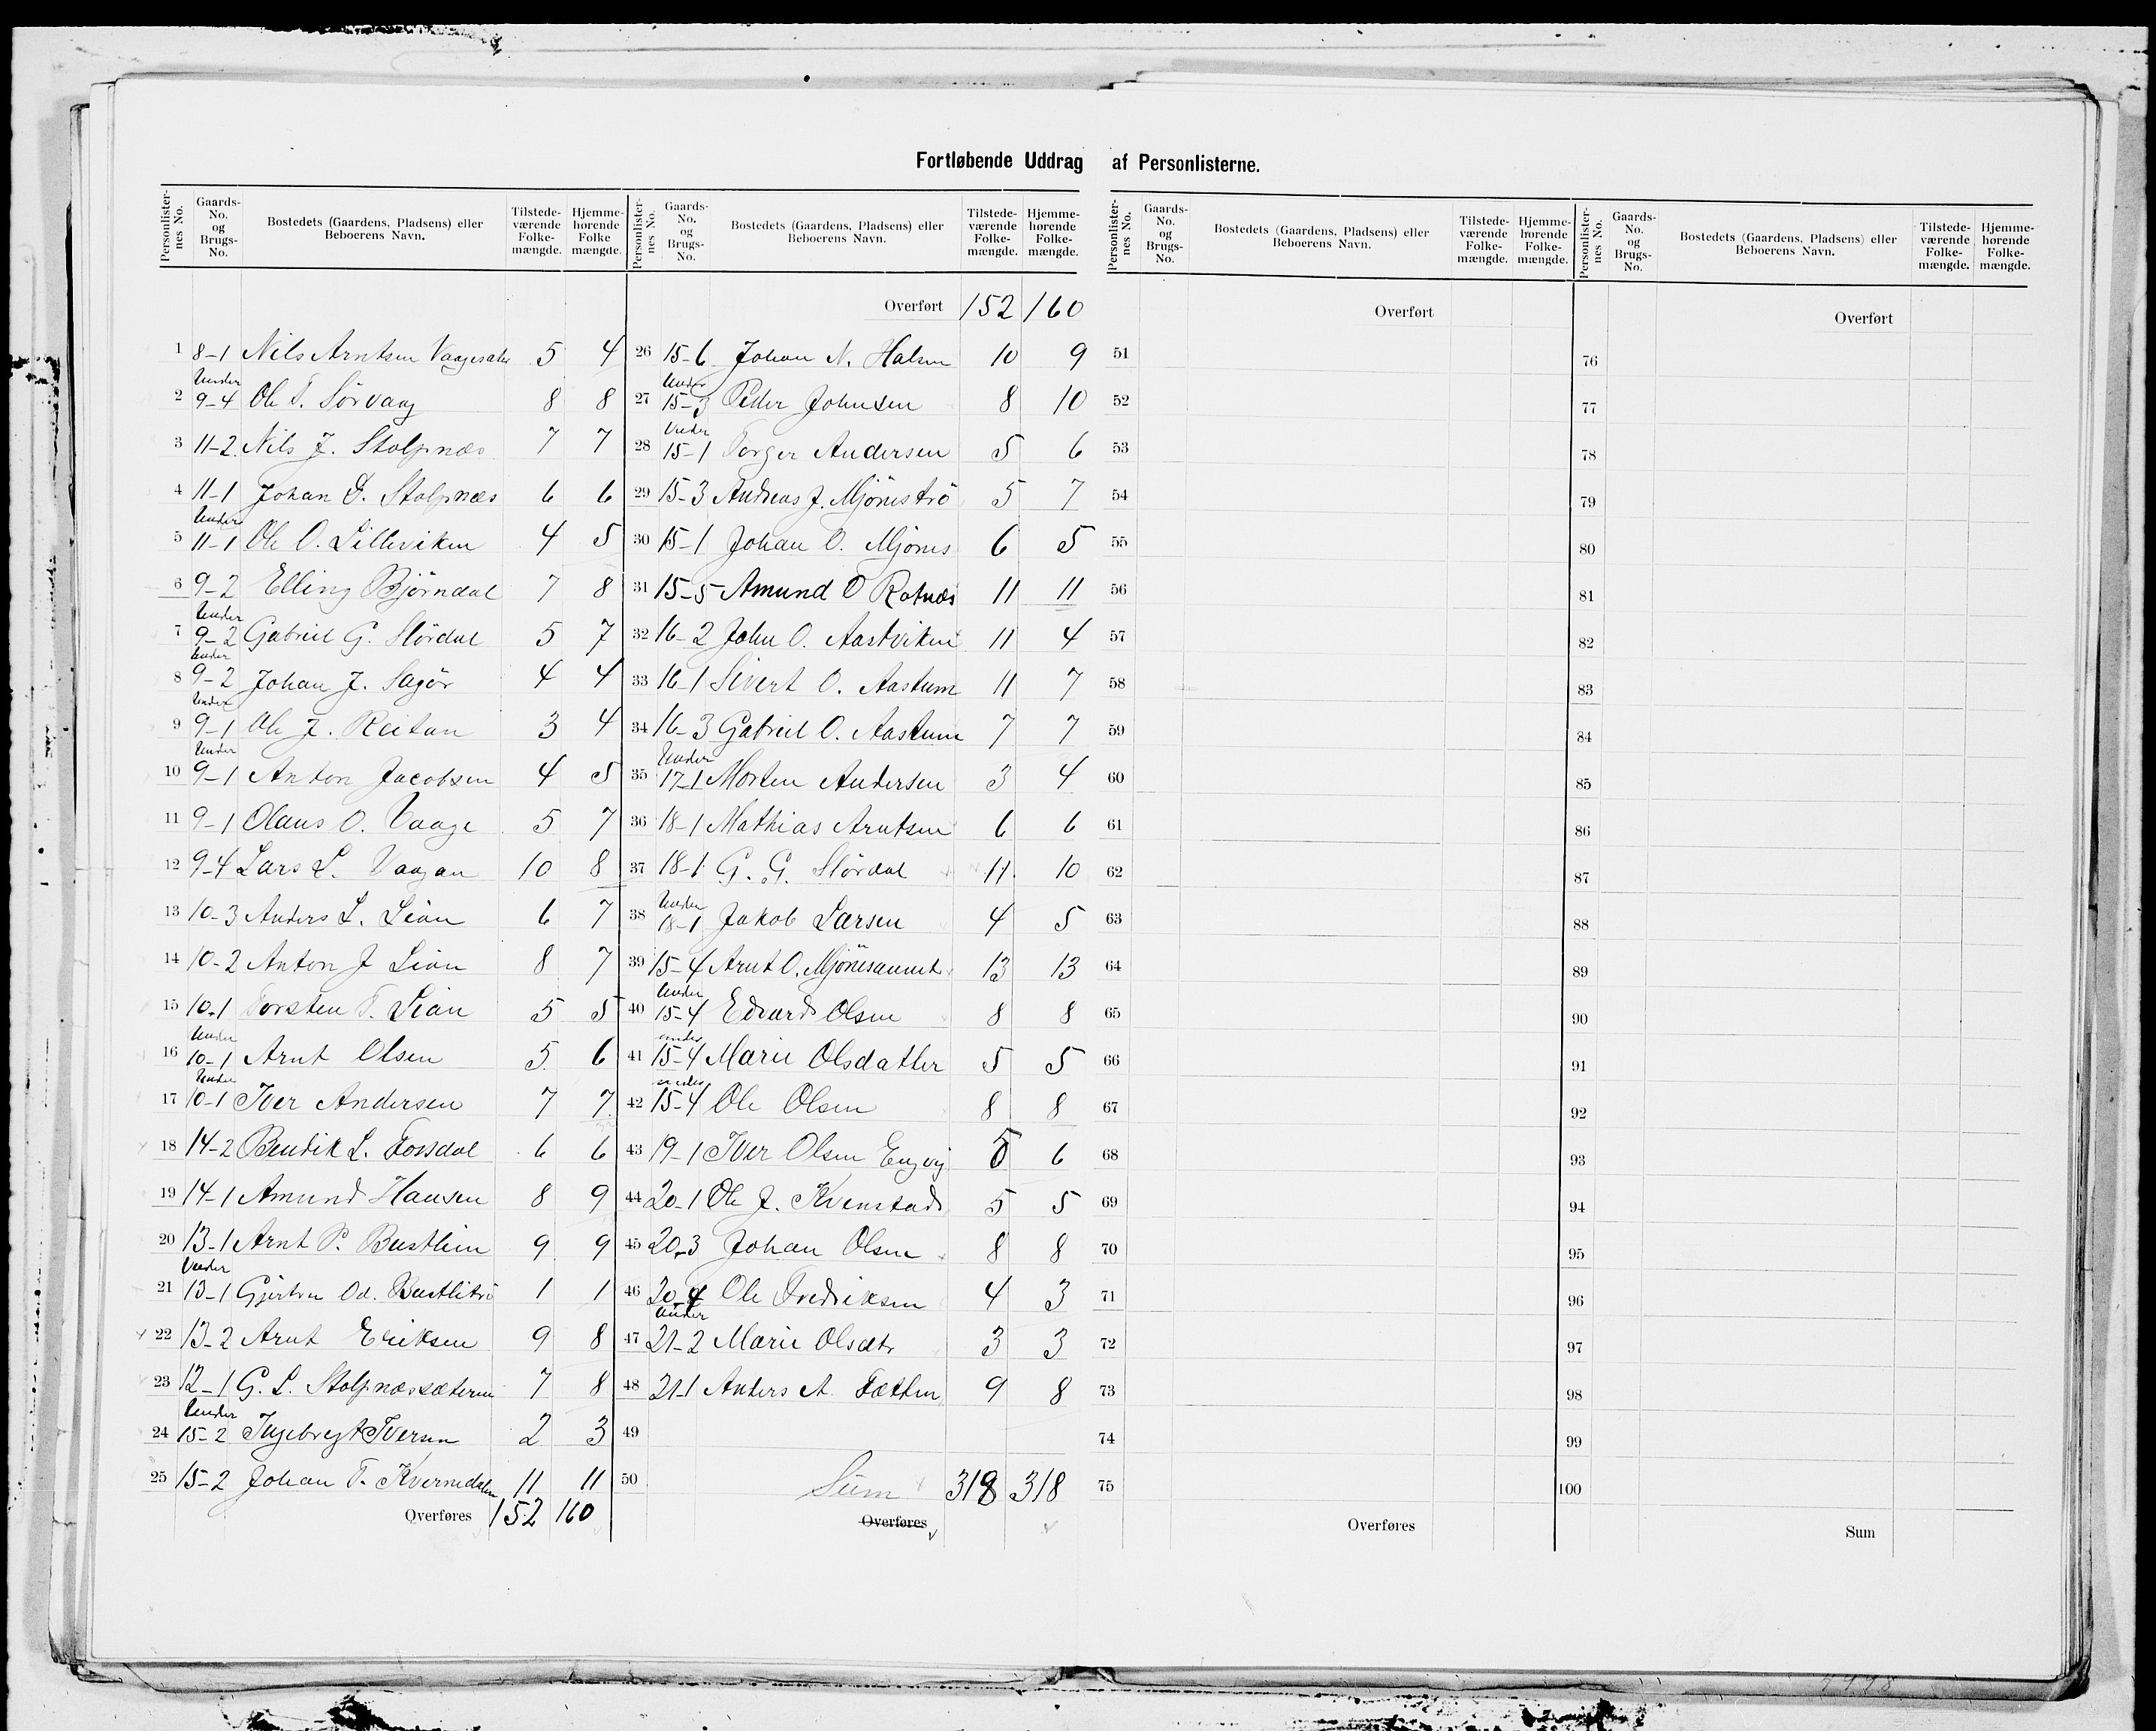 Fortløbende Uddrag af Personlisterne.
Personlisternes No. Gaards-No. og Brugs-No. Bostedets (Gaardens, Pladsens) eller Beboerens Navn. Tilstedeværende Folkemængde. Hjemmehørende Folkemængde.
1 8-1 Nils Arntsen 5 4
2 Under 9-4 Ole T. Sørvaag 8 8
3 11-2 Nils J. Stolpnæs 7 7
4 11-1 Johan Stolpnæs 6 6
5 Under 11-1 Ole O. Lilleviken 4 5
6 9-2 Elling Bjørndal 7 8
7 Under 9-2 Gabriel G. Slørdal 5 7
8 Under 9-2 Johan J. Sagør 4 4
9 Under 9-1 Ole J. Reitan 3 4
10 Under 9-1 Anton Jacobsen 4 5
11 9-1 Olaus O. Vaage 5 7
12 9-4 Lars L. Vaagan 10 8
13 10-3 Anders L. Lian 6 7
14 10-2 Anton J Lian 8 7
15 10-1 Torsten T. Lian 5 5
16 Under 10-1 Arnt Olsen 5 6
17 Under 10-1 Iver Andersen 7 7
18 14-2 Bendik L. Fossdal 6 6
19 14-1 Amund Hansen 8 9
20 13-1 Arnt P. Bustlien 9 9
21 Under 13-1 Od. Bustlitrö 1 1
22 13-2 Arnt Eriksen 9 8
23 12-1 G. L. Stolpnæssæteren 7 8
24 Under 15-2 Ingebregt Iversen 2 3
25 15-2 Johan T. Kvernedalen 11 11
Overføres 152 160
Overført 152 160
26 15-6 Johan N. Halsen 10 9
27 Under 15-3 Peder Johnsen 8 10
28 Under 15-1 Torger Andersen 5 6
29 15-3 Andreas J. Mjöneströ 5 7
30 15-1 Johan O. Mjønes 6 5
31 15-5 Amund O Rotnæs 11 11
32 16-2 John O. Aastviken 11 4
33 16-1 Sivert O. Aastum 11 7
34 16-3 Gabriel O. Aastum 7 7
35 Under 17-1 Morten Andersen 3 4
36 18-1 Mathias Arntsen 6 6
37 18-1 G. G. Slördal 11 10
38 Under 18-1 Jakob Larsen 4 5
39 15-4 Arnt O. Mjönesaunet 13 13
40 Under 15-4 Edvard Olsen 8 8
41 under 15-4 Marie Olsdatter 5 5
42 under 15-4 Ole Olsen 8 8
43 19-1 Iver Olsen Engvig 5 6
44 20-1 Ole J. Kvenstad 5 5
45 20-3 Johan Olsen 8 8
46 20-4 Ole Fredriksen 4 3
47 Under 21-2 Marie Olsdtr 3 3
48 21-1 Anders A. Fætten 9 8
49
50 Sum 318 318
Overføres
Personlisternes No. Gaards-No. og Brugs-No. Bostedets (Gaardens, Pladsens) eller Beboerens Navn. Tilstedeværende Folkemængde. Hjemmehørende Folkemængde.
Overført
51
52
53
54
55
56
57
58
59
60
61
62
63
64
65
66
67
68
69
70
71
72
73
74
75
Overføres
Overført
76
77
78
79
80
81
82
83
84
85
86
87
88
89
90
91
92
93
94
95
96
97
98
99
100
Sum